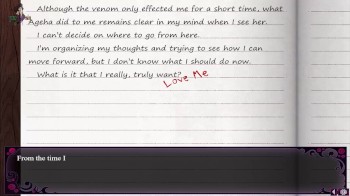 Although the venom only effected me for a short time, what
Ageha did to me remains clear in my mind when I see her.
I can't decide on where to go from here.
I'm organizing my thoughts and trying to see how I can
move forward, but I don't know what I should do now.
What is it that I really, truly want?
Love Me
From the time I